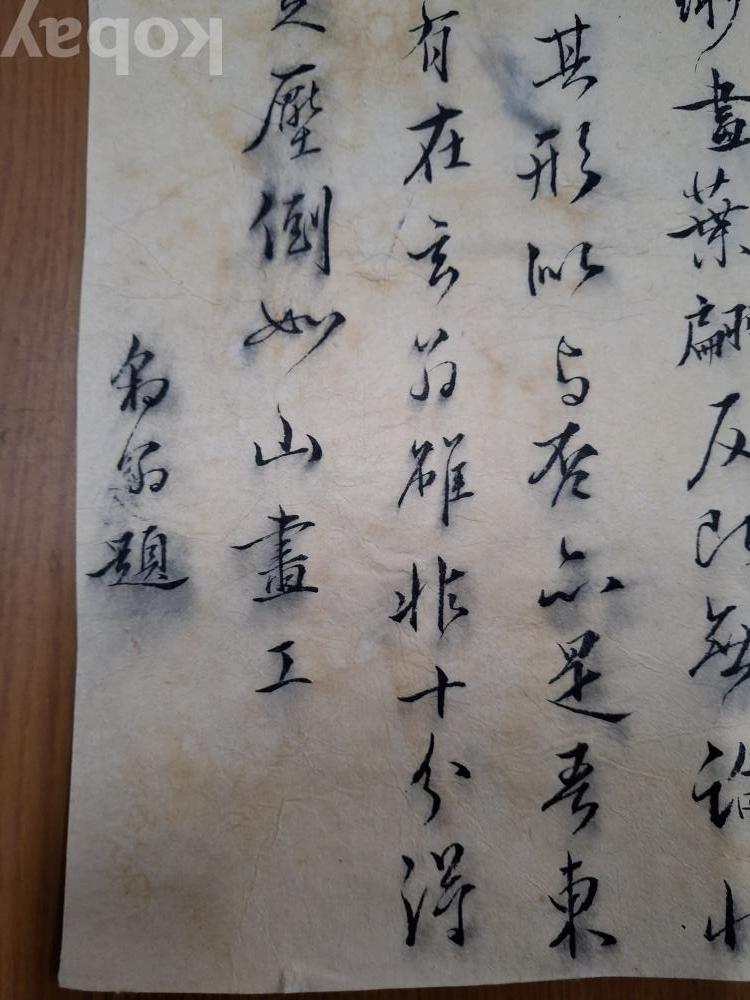 kobay
畫葉翩反無論
其形似与否亦是吾東
有在玄翁雖非十分得
壓倒如山畫工
翁題